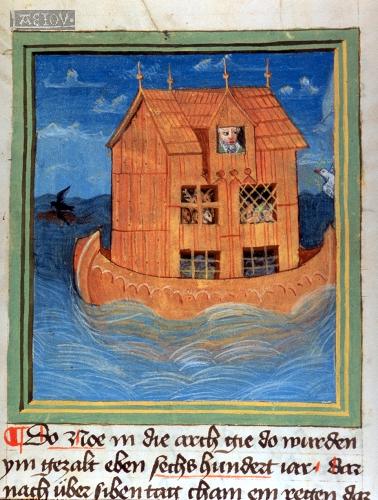 ΑΕΤΟΥ
¶ Do Noe in die arch gie do wurden
ym gezalt eben sechs hundert iar. dar
nach über siben tag cham ein regen dar